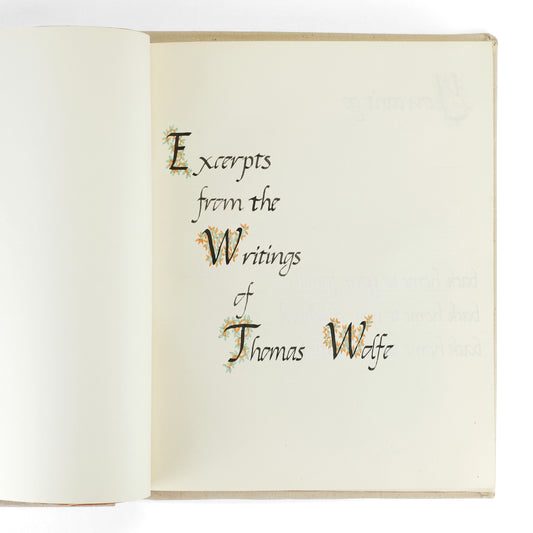 Excerpts
from the
Writings
of
Thomas Wolfe